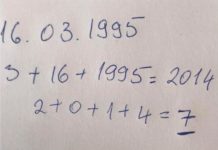 16.03.1995
3 + 16 + 1995 = 2014
2 + 0 + 1 + 4 = 7